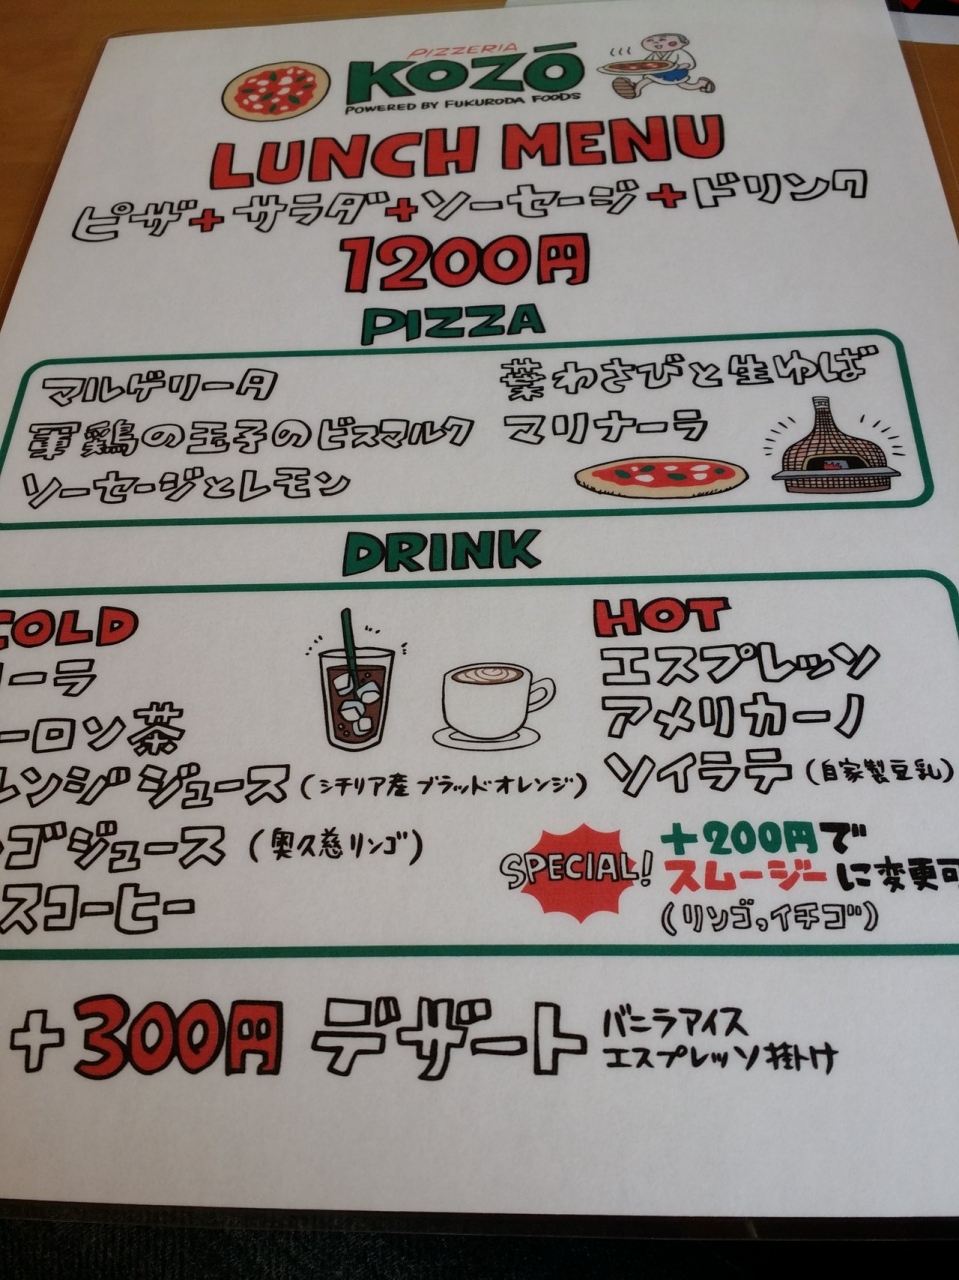 PIZZERIA
KOZŌ
POWERED BY FUKURODA FOODS
LUNCH MENU
ピザ+サラダ+ソーセージ+ドリンク
1200円
PIZZA
マルゲリータ
軍鶏の玉子のビスマルク
ソーセージとレモン
葉わさびと生ゆば
マリナーラ
DRINK
COLD
ーラ
ーロン茶
レンジジュース(シチリア産ブラッドオレンジ)
ゴジュース(奥久慈リンゴ)
スコーヒー
HOT
エスプレッソ
アメリカーノ
ソイラテ(自家製豆乳)
SPECIAL!
+200円で
スムージーに変更可
(リンゴ,イチゴ)
+300円 デザート
バニラアイス
エスプレッソ掛け